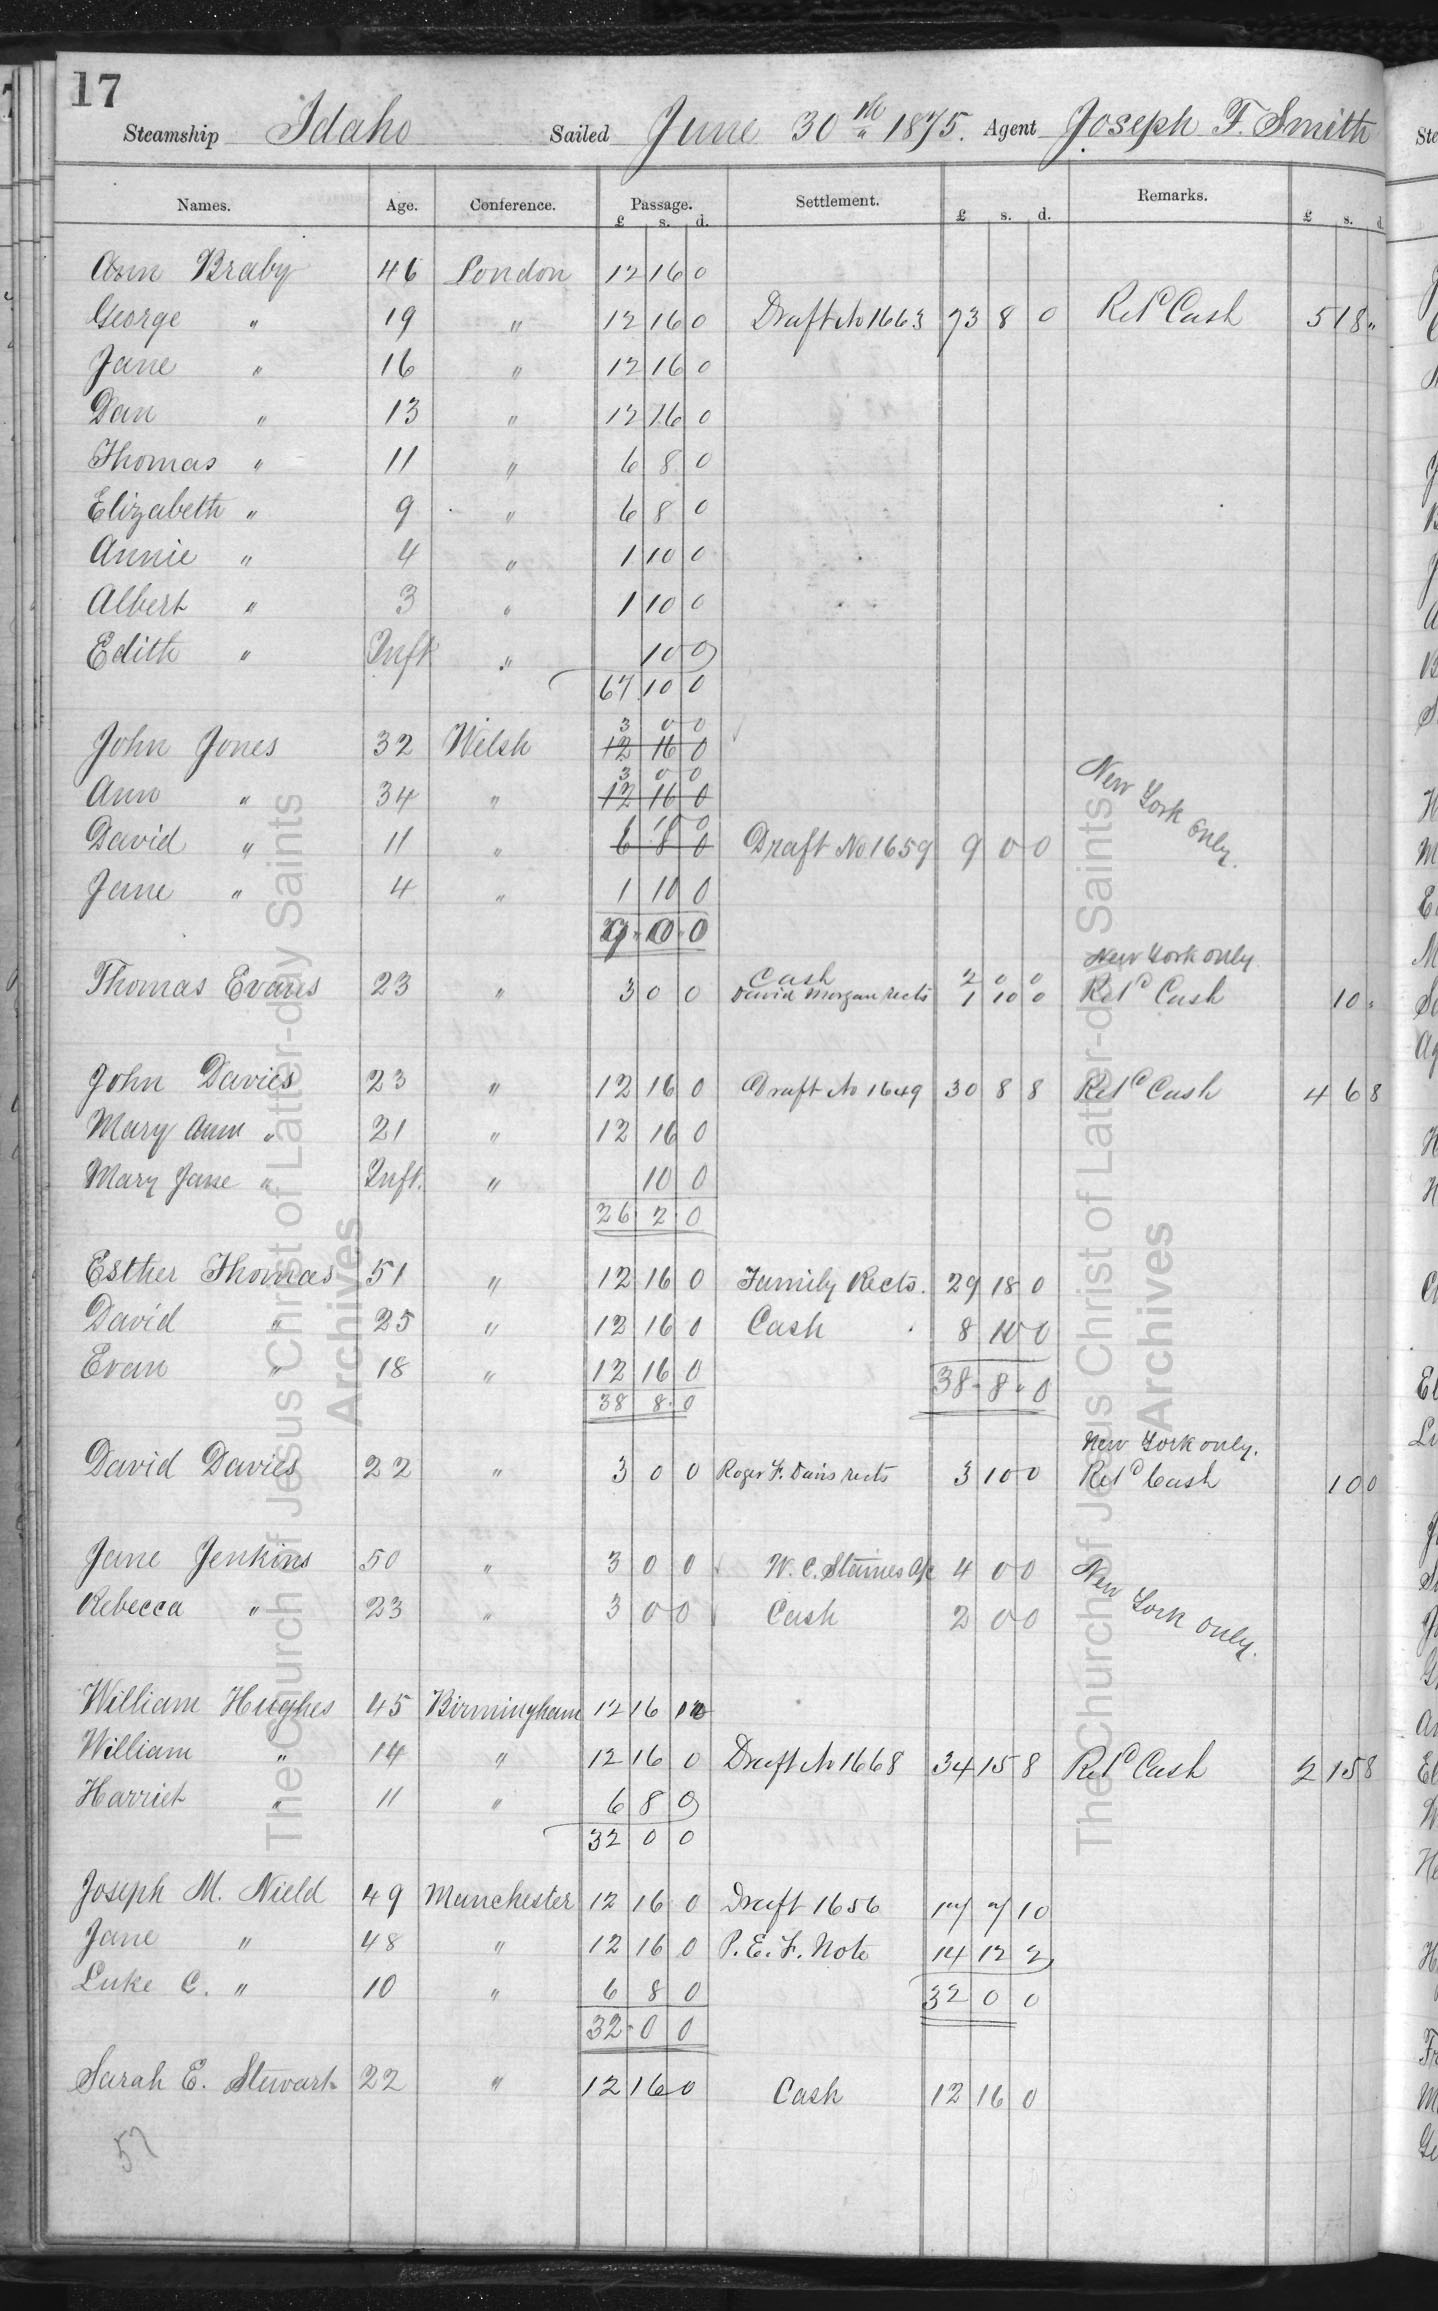 17
Steamship Idaho Sailed June 30th 1875. Agent Joseph F. Smith
Names. Age. Conference. Passage. Settlement. Remarks.
£ s. d. £ s. d. £ s. d.
Ann Braby 46 London 12 16 0
George " 19 " 12 16 0 Draft No 1663 73 8 0 Retd Cash 5 18 "
Jane " 16 " 12 16 0
Dan " 13 " 12 16 0
Thomas " 11 " 6 8 0
Elizabeth " 9 " 6 8 0
Annie " 4 " 1 10 0
Albert " 3 " 1 10 0
Edith " Inft " 10 0
67 10 0
3 0 0
John Jones 32 Welsh 12 16 0
3 0 0
Ann " 34 " 12 16 0 New York only.
1 10 0
David " 11 " 6 8 0 Draft No 1659 9 0 0
Jane " 4 " 1 10 0
9 0 0
Cash 2 0 0 New York only
Thomas Evans 23 " 3 0 0 David Morgan rects 1 10 0 Retd Cash 10 "
John Davies 23 " 12 16 0 Draft No 1649 30 8 8 Retd Cash 4 6 8
Mary Ann " 21 " 12 16 0
Mary Jane " Inft. " 10 0
26 2 0
Esther Thomas 51 " 12 16 0 Family Rects. 29 18 0
David " 25 " 12 16 0 Cash 8 10 0
Evan " 18 " 12 16 0 38 - 8 - 0
38 8 - 0
New York only.
David Davies 22 " 3 0 0 Roger F. Davis rects 3 10 0 Retd Cash 10 0
Jane Jenkins 50 " 3 0 0 W. C. Staines a/c 4 0 0 New York only.
Rebecca " 23 " 3 0 0 Cash 2 0 0
William Hughes 45 Birmingham 12 16 0
William " 14 " 12 16 0 Draft No 1668 34 15 8 Retd Cash 2 15 8
Harriet " 11 " 6 8 0
32 0 0
Joseph M. Nield 49 Manchester 12 16 0 Draft 1656 17 7 10
Jane " 48 " 12 16 0 P. E. F. Note 14 12 2
Luke C. " 10 " 6 8 0 32 0 0
32 - 0 0
Sarah E. Stewart 22 " 12 16 0 Cash 12 16 0
57
The Church of Jesus Christ of Latter-day Saints
Archives
The Church of Jesus Christ of Latter-day Saints
Archives